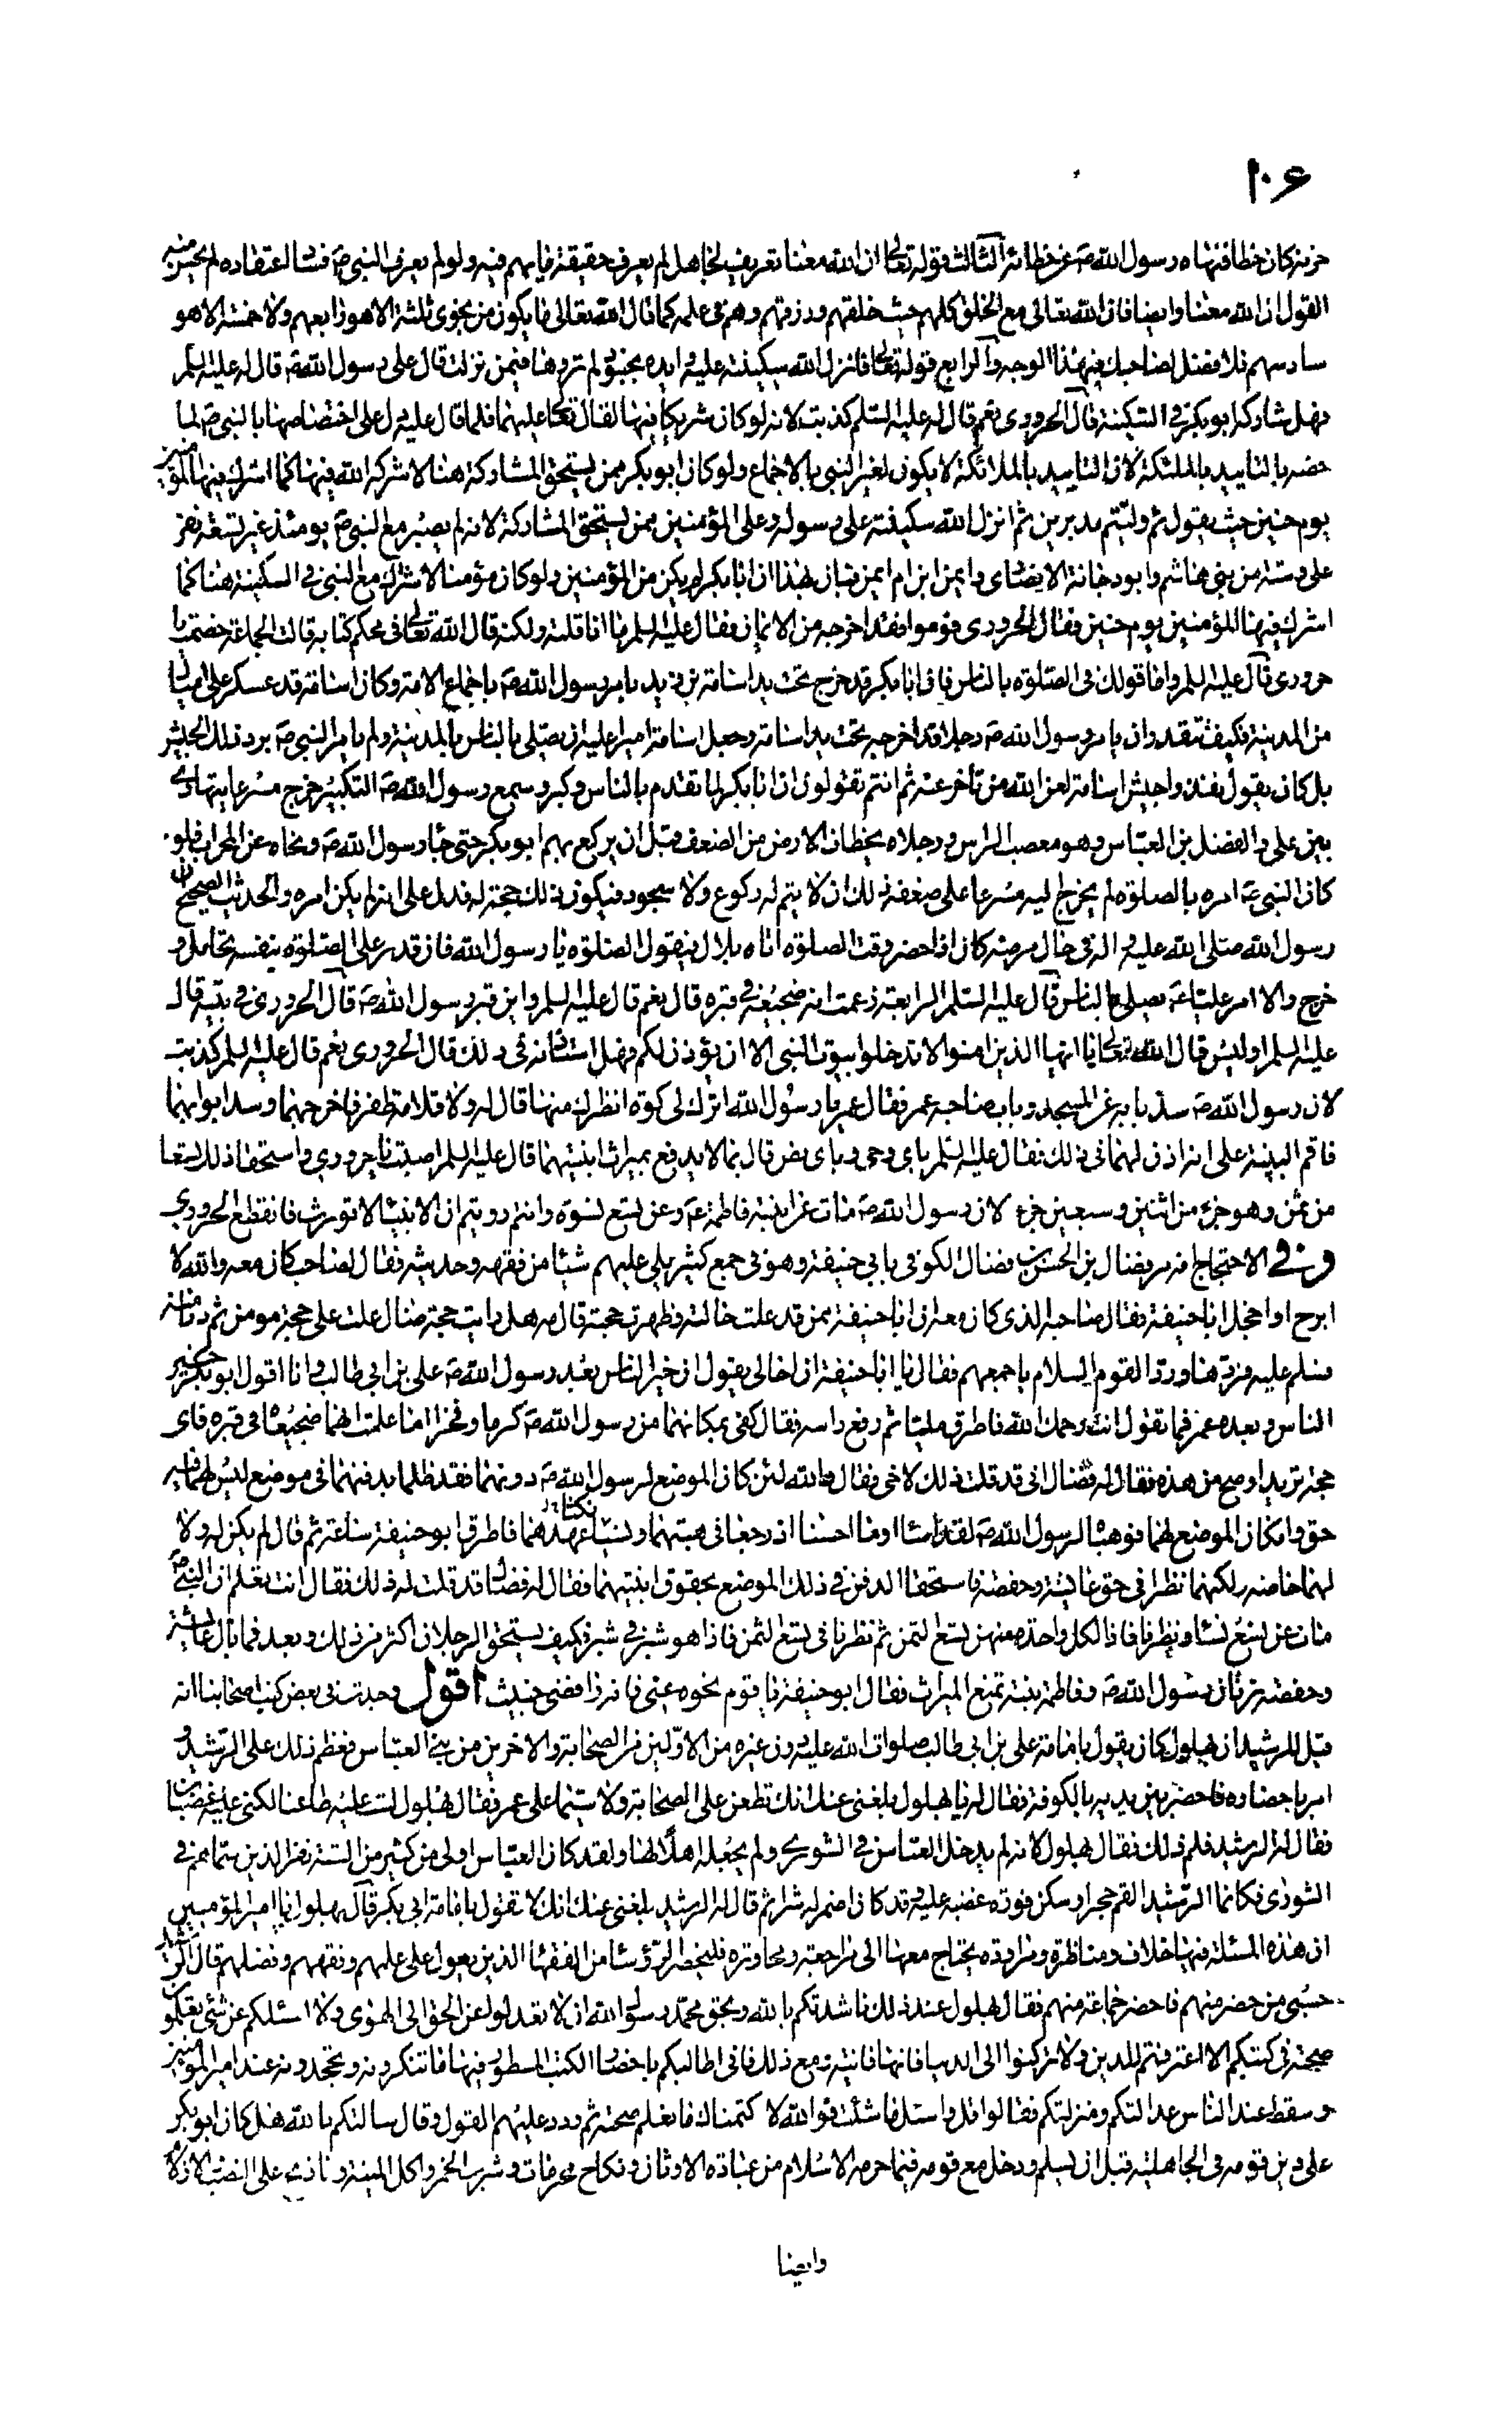 ١٠٦
حزنه كان خطا فنهاه رسول الله ص عن خطائه الثالث قوله تعالى ان الله معنا تعريف لجاهل لم يعرف حقيقة ما يهم فيه ولو لم يعرف النبي ص فساد اعتقاده لم يحسن منه
القول ان الله معنا وايضا فان الله تعالى مع الخلق كلهم حيث خلقهم ورزقهم وهم في علمه كما قال الله تعالى ما يكون من نجوى ثلثة الا هو رابعهم ولا خمسة الا هو
سادسهم فلا فضل لصاحبك في هذا الوجه والرابع قوله تعالى فانزل الله سكينته عليه وايده بجنود لم تروها فيمن نزلت قال على رسول الله ص قال له عليه السلم
فهل شاركه ابو بكر في السكينة قال الحروري نعم قال له عليه السلم كذبت لانه لو كان شريكا فيها لقال تعالى عليهما فلما قال عليه دل على اختصاصها بالنبي ص لما
خصه بالتاييد بالملئكة لان التاييد بالملائكة لا يكون لغير النبي بالاجماع ولو كان ابو بكر ممن يستحق المشاركة هنا لاشركه الله فيها كما اشرك فيها المؤمنين
يوم حنين حيث يقول ثم وليتم مدبرين ثم انزل الله سكينته على رسوله وعلى المؤمنين ممن يستحق المشاركة لانه لم يصبر مع النبي ص يومئذ غير تسعة نفر
على وستة من بني هاشم وابو دجانة الانصاري وايمن ابن ام ايمن فبان بهذا ان ابا بكر لم يكن من المؤمنين ولو كان مؤمنا لاشركه مع النبي في السكينة هنا كما
اشرك فيها المؤمنين يوم حنين فقال الحروري قوموا فقد اخرجه من الايمان فقال عليه السلم ما انا قلته ولكنه قال الله تعالى في محكم كتابه قالت الجماعة خصمت يا
حروري قال عليه السلم واما قولك في الصلوة بالناس فان ابا بكر قد خرج تحت يد اسامة بن زيد بامر رسول الله ص باجماع الامة وكان اسامة قد عسكر على اميال
من المدينة فكيف يتقدر ان يامر رسول الله ص رجلا قد اخرجه تحت يد اسامة وجعل اسامة اميرا عليه ان يصلي بالناس بالمدينة ولم يامر النبي ص برد ذلك الجيش
بل كان يقول نفذوا جيش اسامة لعن الله من تاخر عنه ثم انتم تقولون ان ابا بكر لما تقدم بالناس وكبر وسمع رسول الله ص التكبير خرج مسرعا يتهادى
بين على والفضل بن العباس وهو معصب الراس ورجلاه يخطان الارض من الضعف قبل ان يركع بهم ابو بكر حتى جاء رسول الله ص ونحاه عن المحراب فلو
كان النبي ع امره بالصلوة لم يخرج اليه مسرعا على ضعفه ذلك ان لا يتم له ركوع ولا سجود فيكون ذلك حجة له فدل على انه لم يكن امره والحديث الصحيح ان
رسول الله صلى الله عليه واله في حال مرضه كان اذا حضر وقت الصلوة اتاه بلال فيقول الصلوة يا رسول الله فان قدر على الصلوة بنفسه تحامل و
خرج والا امر عليا ع يصلي بالناس قال عليه السلم الرابعة زعمت انه ضجيعه في قبره قال نعم قال عليه السلم واين قبر رسول الله ص قال الحروري في بيته قال
عليه السلم اوليس قال الله تعالى يا ايها الذين امنوا لا تدخلوا بيوت النبي الا ان يؤذن لكم فهل استاذنه في ذلك قال الحروري نعم قال عليه السلم كذبت
لان رسول الله ص سد بابه عن المسجد وباب صاحبه عمر فقال عمر يا رسول الله اترك لي كوة انظرك منها قال له ولا قلامة ظفر فاخرجهما وسد ابوابهما
فاقم البينة على انه اذن لهما في ذلك فقال عليه السلم باي وحي وباي نص قال بما لا يدفع بميراث ابنتيهما قال عليه السلم اصبت يا حروري واستحقا ذلك تسعا
من ثمن وهو جزء من اثنين وسبعين جزء لان رسول الله ص مات عن ابنته فاطمة ع وعن تسع نسوة وانتم رويتم ان الانبياء لا تورث فانقطع الحروري
وفي الاحتجاج انه مر فضال بن الحسن بن فضال الكوفي بابي حنيفة وهو في جمع كثير يملي عليهم شيئا من فقهه وحديثه فقال لصاحب كان معه والله لا
ابرح او اخجل ابا حنيفة فقال صاحبه الذي كان معه ان ابا حنيفة ممن قد علت حالته وظهرت حجته قال مه هل رايت حجة ضال علت على حجة مومن ثم دنا منه
فسلم عليه فردها ورد القوم السلام باجمعهم فقال يا ابا حنيفة ان اخا لي يقول ان خير الناس بعد رسول الله ص علي بن ابي طالب وانا اقول ابو بكر خير
الناس وبعده عمر فما تقول انت رحمك الله فاطرق مليا ثم رفع راسه فقال كفى بمكانهما من رسول الله ص كرما وفخرا اما علمت انهما ضجيعاه في قبره فاي
حجة تريد اوضح من هذه فقال له فضال اني قد قلت ذلك لاخي فقال والله لئن كان الموضع لرسول الله ص دونهما فقد ظلما بدفنهما في موضع ليس لهما فيه
حق وان كان الموضع لهما فوهباه لرسول الله ص لقد اساءا وما احسنا اذ رجعا في هبتهما ونسيا عهدهما فاطرق ابو حنيفة ساعة ثم قال لم يكن له ولا
لهما خاصة ولكنهما نظرا في حق عايشة وحفصة فاستحقا الدفن في ذلك الموضع بحقوق ابنتيهما فقال له فضال قد قلت له ذلك فقال انت تعلم ان النبي ص
مات عن تسع نساء ونظرنا فاذا لكل واحدة منهن تسع الثمن ثم نظرنا في تسع الثمن فاذا هو شبر في شبر فكيف يستحق الرجلان اكثر من ذلك وبعد فما بال عايشة
وحفصة ترثان رسول الله ص وفاطمة بنته تمنع الميراث فقال ابو حنيفة يا قوم نحوه عني فانه رافضي خبيث اقول وجدت في بعض كتب اصحابنا انه
قيل للرشيد ان بهلول كان يقول بامامة علي بن ابي طالب صلوات الله عليه دون غيره من الاولين من الصحابة والاخرين من بني العباس فعظم ذلك على الرشيد و
امر باحضاره فاحضر بين يديه بالكوفة فقال له يا بهلول بلغني عنك انك تطعن على الصحابة ولا سيما على عمر فقال بهلول لست عليه طاعنا لكني عليه غضبان
فقال له الرشيد فلم ذلك فقال بهلول لانه لم يدخل العباس في الشورى ولم يجعله اهلا لها ولقد كان العباس اولى من كثير من الستة نفر الذين سماهم في
الشورى فكانما الرشيد القم حجرا وسكن فورة غضبه عليه وقد كان اضمر له شرا ثم قال له الرشيد بلغني عنك انك لا تقول بامامة ابي بكر قال بهلول يا امير المؤمنين
ان هذه المسئلة فيها خلاف ومناظرة ومراودة يحتاج معها الى مراجعة ومحاورة فليحضر رؤسا من الفقهاء الذين يعول على علمهم وفقههم وفضلهم قال الرشيد
حسبي من حضر منهم فاحضر جماعة منهم فقال بهلول عند ذلك ناشدتكم بالله وبحق محمد رسول الله ان لا تعدلوا عن الحق الى الهوى ولا اسئلكم عن شئ تعلمون
صحته في كتبكم الا اعترفتم للدين ولا تركنوا الى الدنيا فانها فانية ومع ذلك فاني اطالبكم باحضار الكتب المسطور فيها ما تنكرونه وتجحدونه عند امير المؤمنين
وسقط عند الناس عدالتكم ومنزلتكم فقالوا قل واسئل ما شئت فوالله لا كتمناك ما نعلم صحته ثم ردد عليهم القول وقال سالتكم بالله هل كان ابو بكر
على دين قومه في الجاهلية قبل ان يسلم ودخل مع قومه فيما حرمه الاسلام من عبادة الاوثان ونكاح محرمات وشرب الخمر واكل الميتة وما ذبح على النصب
وايضا